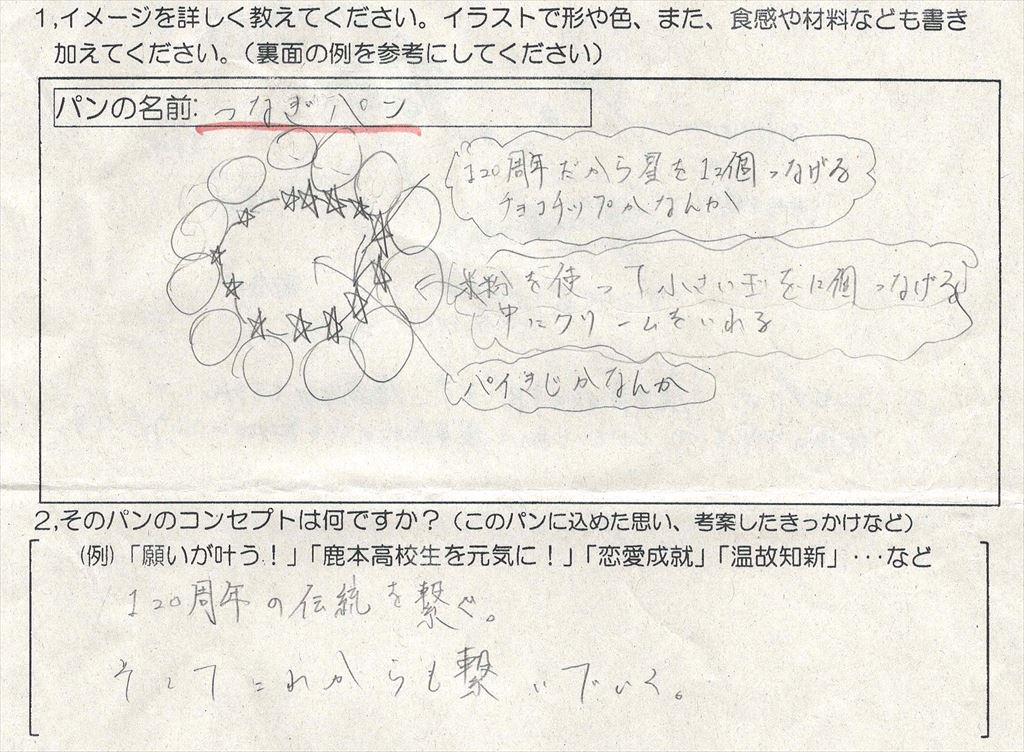 1,イメージを詳しく教えてください。イラストで形や色、また、食感や材料なども書き
加えてください。(裏面の例を参考にしてください)
パンの名前: つなぎパン
120周年だから星を12個つなげる
チョコチップかなんか
米粉を使って小さい玉を12個つなげる
中にクリームをいれる
パイきじかなんか
2,そのパンのコンセプトは何ですか?(このパンに込めた思い、考案したきっかけなど)
(例)「願いが叶う!」「鹿本高校生を元気に!」「恋愛成就」「温故知新」・・・など
120周年の伝統を繋ぐ。
そしてこれからも繋いでいく。